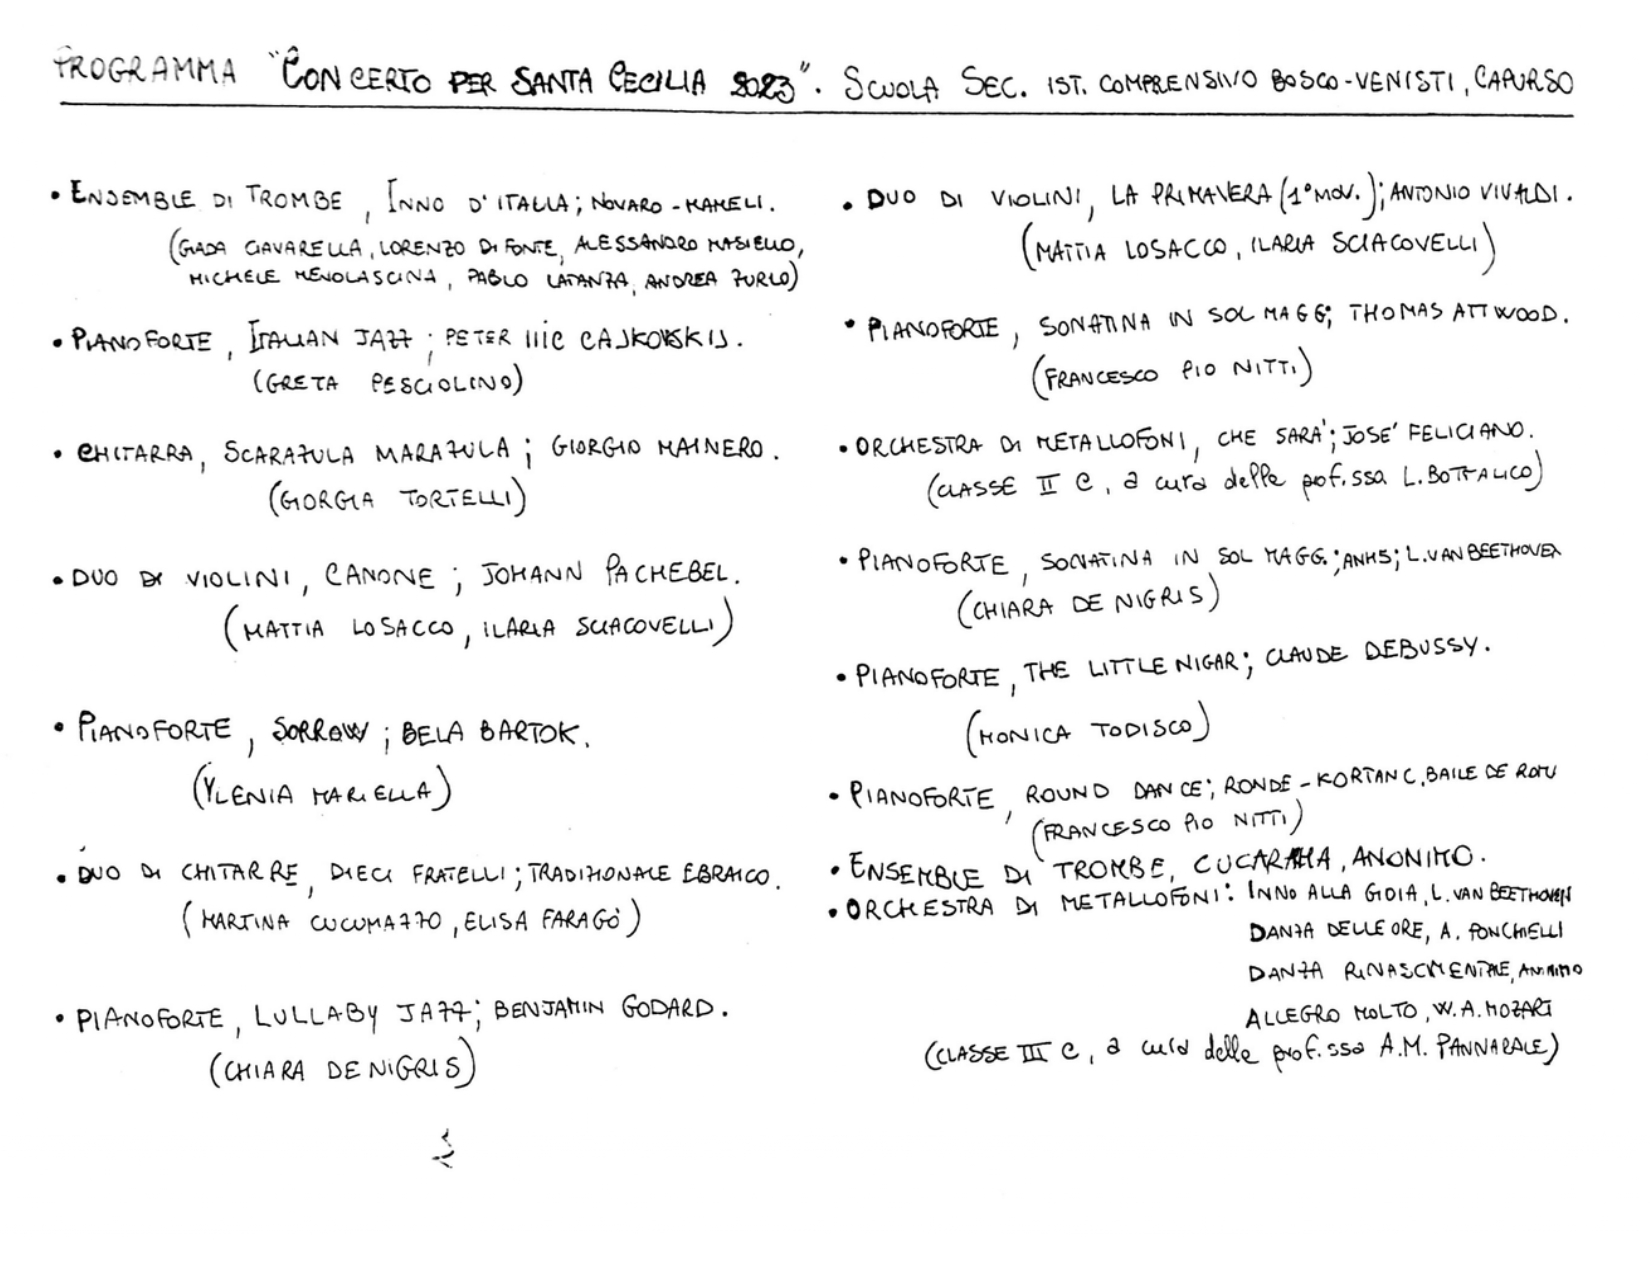 PROGRAMMA "CONCERTO PER SANTA CECILIA 2023". SCUOLA SEC. IST. COMPRENSIVO BOSCO-VENISTI, CAPURSO
• ENSEMBLE DI TROMBE, INNO D'ITALIA; NOVARO-MAMELI.
(GIADA CIAVARELLA, LORENZO DI FONTE, ALESSANDRO MASIELLO,
MICHELE MENOLASCINA, PABLO LATANZA, ANDREA ZURLO)
• PIANOFORTE, ITALIAN JAZZ; PETER ILIC CAJKOVSKIJ.
(GRETA PESCIOLINO)
• CHITARRA, SCARAZULA MARAZULA; GIORGIO MAINERO.
(GIORGIA TORTELLI)
• DUO DI VIOLINI, CANONE; JOHANN PACHEBEL.
(MATTIA LOSACCO, ILARIA SCIACOVELLI)
• PIANOFORTE, SORROW; BELA BARTOK.
(YLENIA MARIELLA)
• DUO DI CHITARRE, DIECI FRATELLI; TRADIZIONALE EBRAICO.
(MARTINA CUCUMAZZO, ELISA FARAGÒ)
• PIANOFORTE, LULLABY JAZZ; BENJAMIN GODARD.
(CHIARA DE NIGRIS)
• DUO DI VIOLINI, LA PRIMAVERA (1° MOV.); ANTONIO VIVALDI.
(MATTIA LOSACCO, ILARIA SCIACOVELLI)
• PIANOFORTE, SONATINA IN SOL MAGG; THOMAS ATTWOOD.
(FRANCESCO PIO NITTI)
• ORCHESTRA DI METALLOFONI, CHE SARA'; JOSE' FELICIANO.
(CLASSE II C, a cura della prof.ssa L. BOTTALICO)
• PIANOFORTE, SONATINA IN SOL MAGG.; ANH5; L. VAN BEETHOVEN
(CHIARA DE NIGRIS)
• PIANOFORTE, THE LITTLE NIGAR; CLAUDE DEBUSSY.
(MONICA TODISCO)
• PIANOFORTE, ROUND DANCE; RONDE-KORTANC, BAILE DE
(FRANCESCO PIO NITTI)
• ENSEMBLE DI TROMBE, CUCARAHA, ANONIMO.
• ORCHESTRA DI METALLOFONI: INNO ALLA GIOIA, L. VAN BEETHOVEN
DANZA DELLE ORE, A. PONCHIELLI
DANZA RINASCIMENTALE, ANONIMO
ALLEGRO MOLTO, W. A. MOZART
(CLASSE III C, a cura della prof.ssa A.M. PANNARALE)